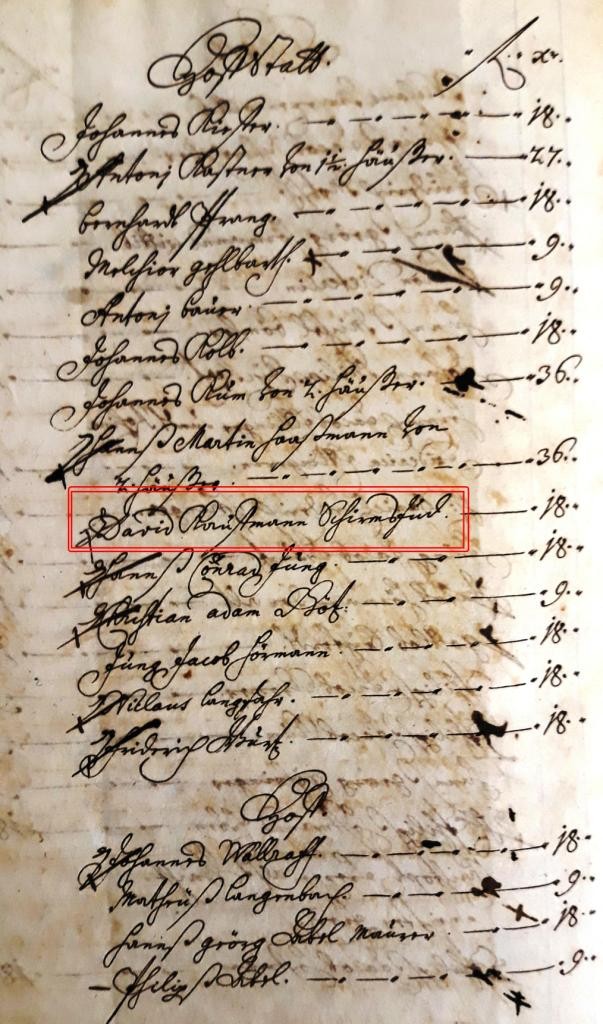 Hoffstatt. f. xr.
Johannes Kiester. 18.
Antonj Kastner von 1½ häußer. 27.
bernhardt Prang. 18.
Melchior gehlbarth. 9.
Antonj bauer. 9.
Johannes Kolb. 18.
Johannes Küm von 2. häußer. 36.
Hannß Martin Haaßmann von
2. häußer. 36.
David Kauffmann Schirmbsjud. 18.
Hannß Conrad Jüng. 18.
Christian adam 9.
Jüng Jacob hörmann. 18.
Niclaus langfahr. 18.
Friderich 18.
Hoff
Johannes Wallraff. 18.
Matheüß langenbach. 9.
hannß geörg Maurer 18.
Philipß 9.